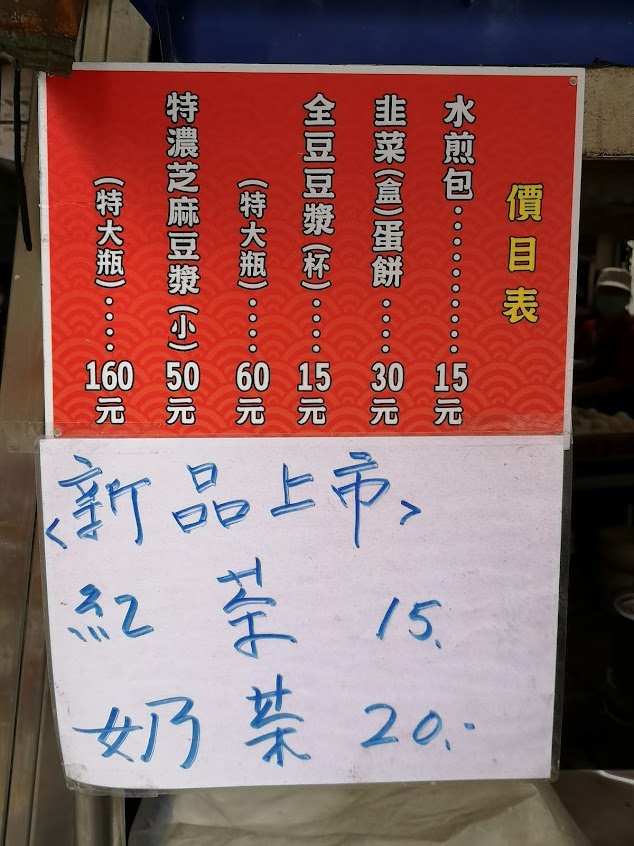 價目表
水煎包..............15元
韭菜(盒)蛋餅....30元
全豆豆漿(杯)....15元
(特大瓶)....60元
特濃芝麻豆漿(小)50元
(特大瓶)....160元
<新品上市>
紅茶 15.
奶茶 20.-